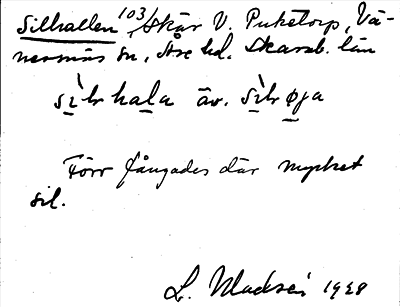 Silhallen 103/ Skär V. Puketorp, Vä-
nersnäs sn, Åse hd. Skarab. län
sìlhala äv. sìløja
Förr fångades där mycket
sil.
L. 1928